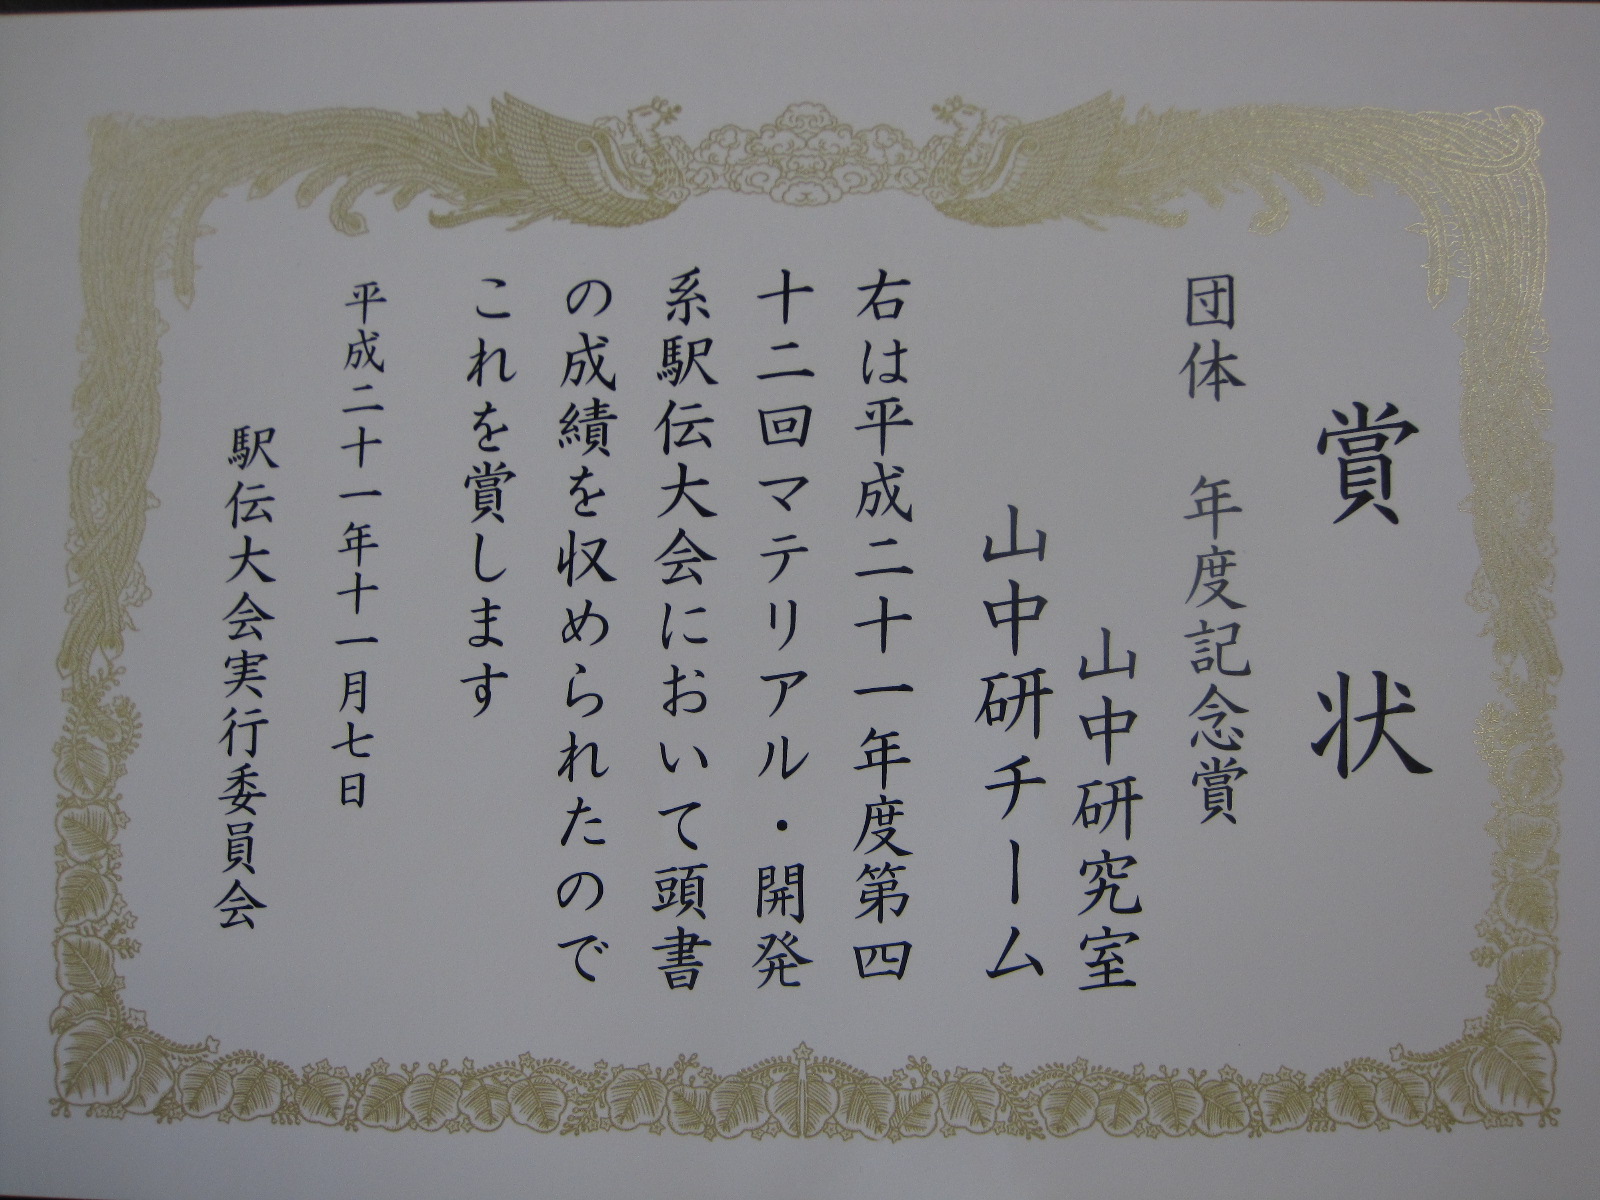 賞状
団体 年度記念賞
山中研究室
山中研チーム
右は平成二十一年度第四
十二回マテリアル・開発
系駅伝大会において頭書
の成績を収められたので
これを賞します
平成二十一年十一月七日
駅伝大会実行委員会